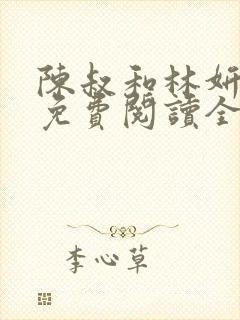 陳叔和林妍
免費閱讀全
李心草